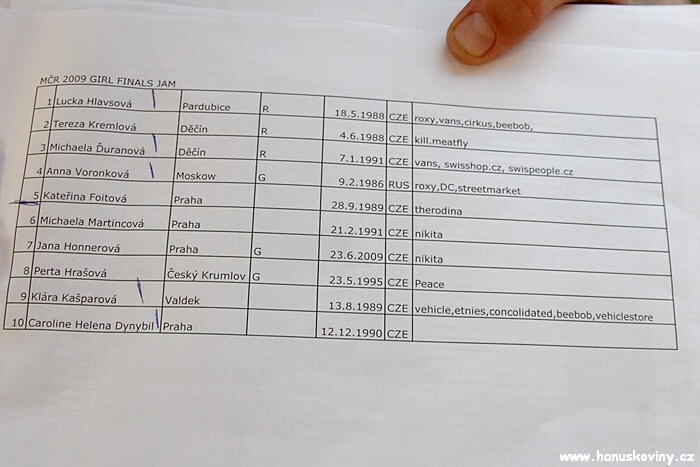 MČR 2009 GIRL FINALS JAM
1 Lucka Hlavsová Pardubice R 18.5.1988 CZE roxy,vans,cirkus,beebob,
2 Tereza Kremlová Děčín R 4.6.1988 CZE kill.meatfly
3 Michaela Ďuranová Děčín R 7.1.1991 CZE vans, swisshop.cz, swispeople.cz
4 Anna Voronková Moskow G 9.2.1986 RUS roxy,DC,streetmarket
5 Kateřina Foitová Praha 28.9.1989 CZE therodina
6 Michaela Martincová Praha 21.2.1991 CZE nikita
7 Jana Honnerová Praha G 23.6.2009 CZE nikita
8 Perta Hrašová Český Krumlov G 23.5.1995 CZE Peace
9 Klára Kašparová Valdek 13.8.1989 CZE vehicle,etnies,concolidated,beebob,vehiclestore
10 Caroline Helena Dynybil Praha 12.12.1990 CZE
www.hanuskoviny.cz